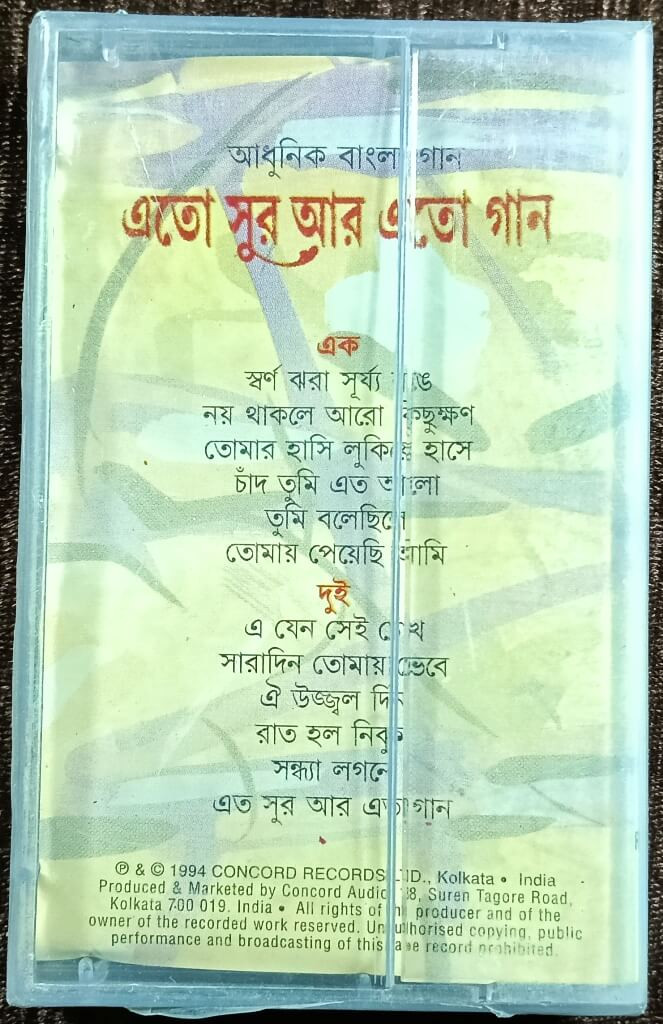 আধুনিক বাংলা গান
এতো সুর আর এতো গান
এক
স্বর্ণ ঝরা সূর্য্য রঙে
নয় থাকলে আরো কিছুক্ষণ
তোমার হাসি লুকিয়ে হাসে
চাঁদ তুমি এত আলো
তুমি বলেছিলে
তোমায় পেয়েছি আমি
দুই
এ যেন সেই চোখ
সারাদিন তোমায় ভেবে
ঐ উজ্জ্বল দিন
রাত হল নিঝুম
সন্ধ্যা লগনে
এত সুর আর এতো গান
℗ & © 1994 CONCORD RECORDS LTD., Kolkata • India
Produced & Marketed by Concord Audio, Suren Tagore Road,
Kolkata 700 019. India • All rights of the producer and of the
owner of the recorded work reserved. Unauthorised copying, public
performance and broadcasting of this tape record prohibited.